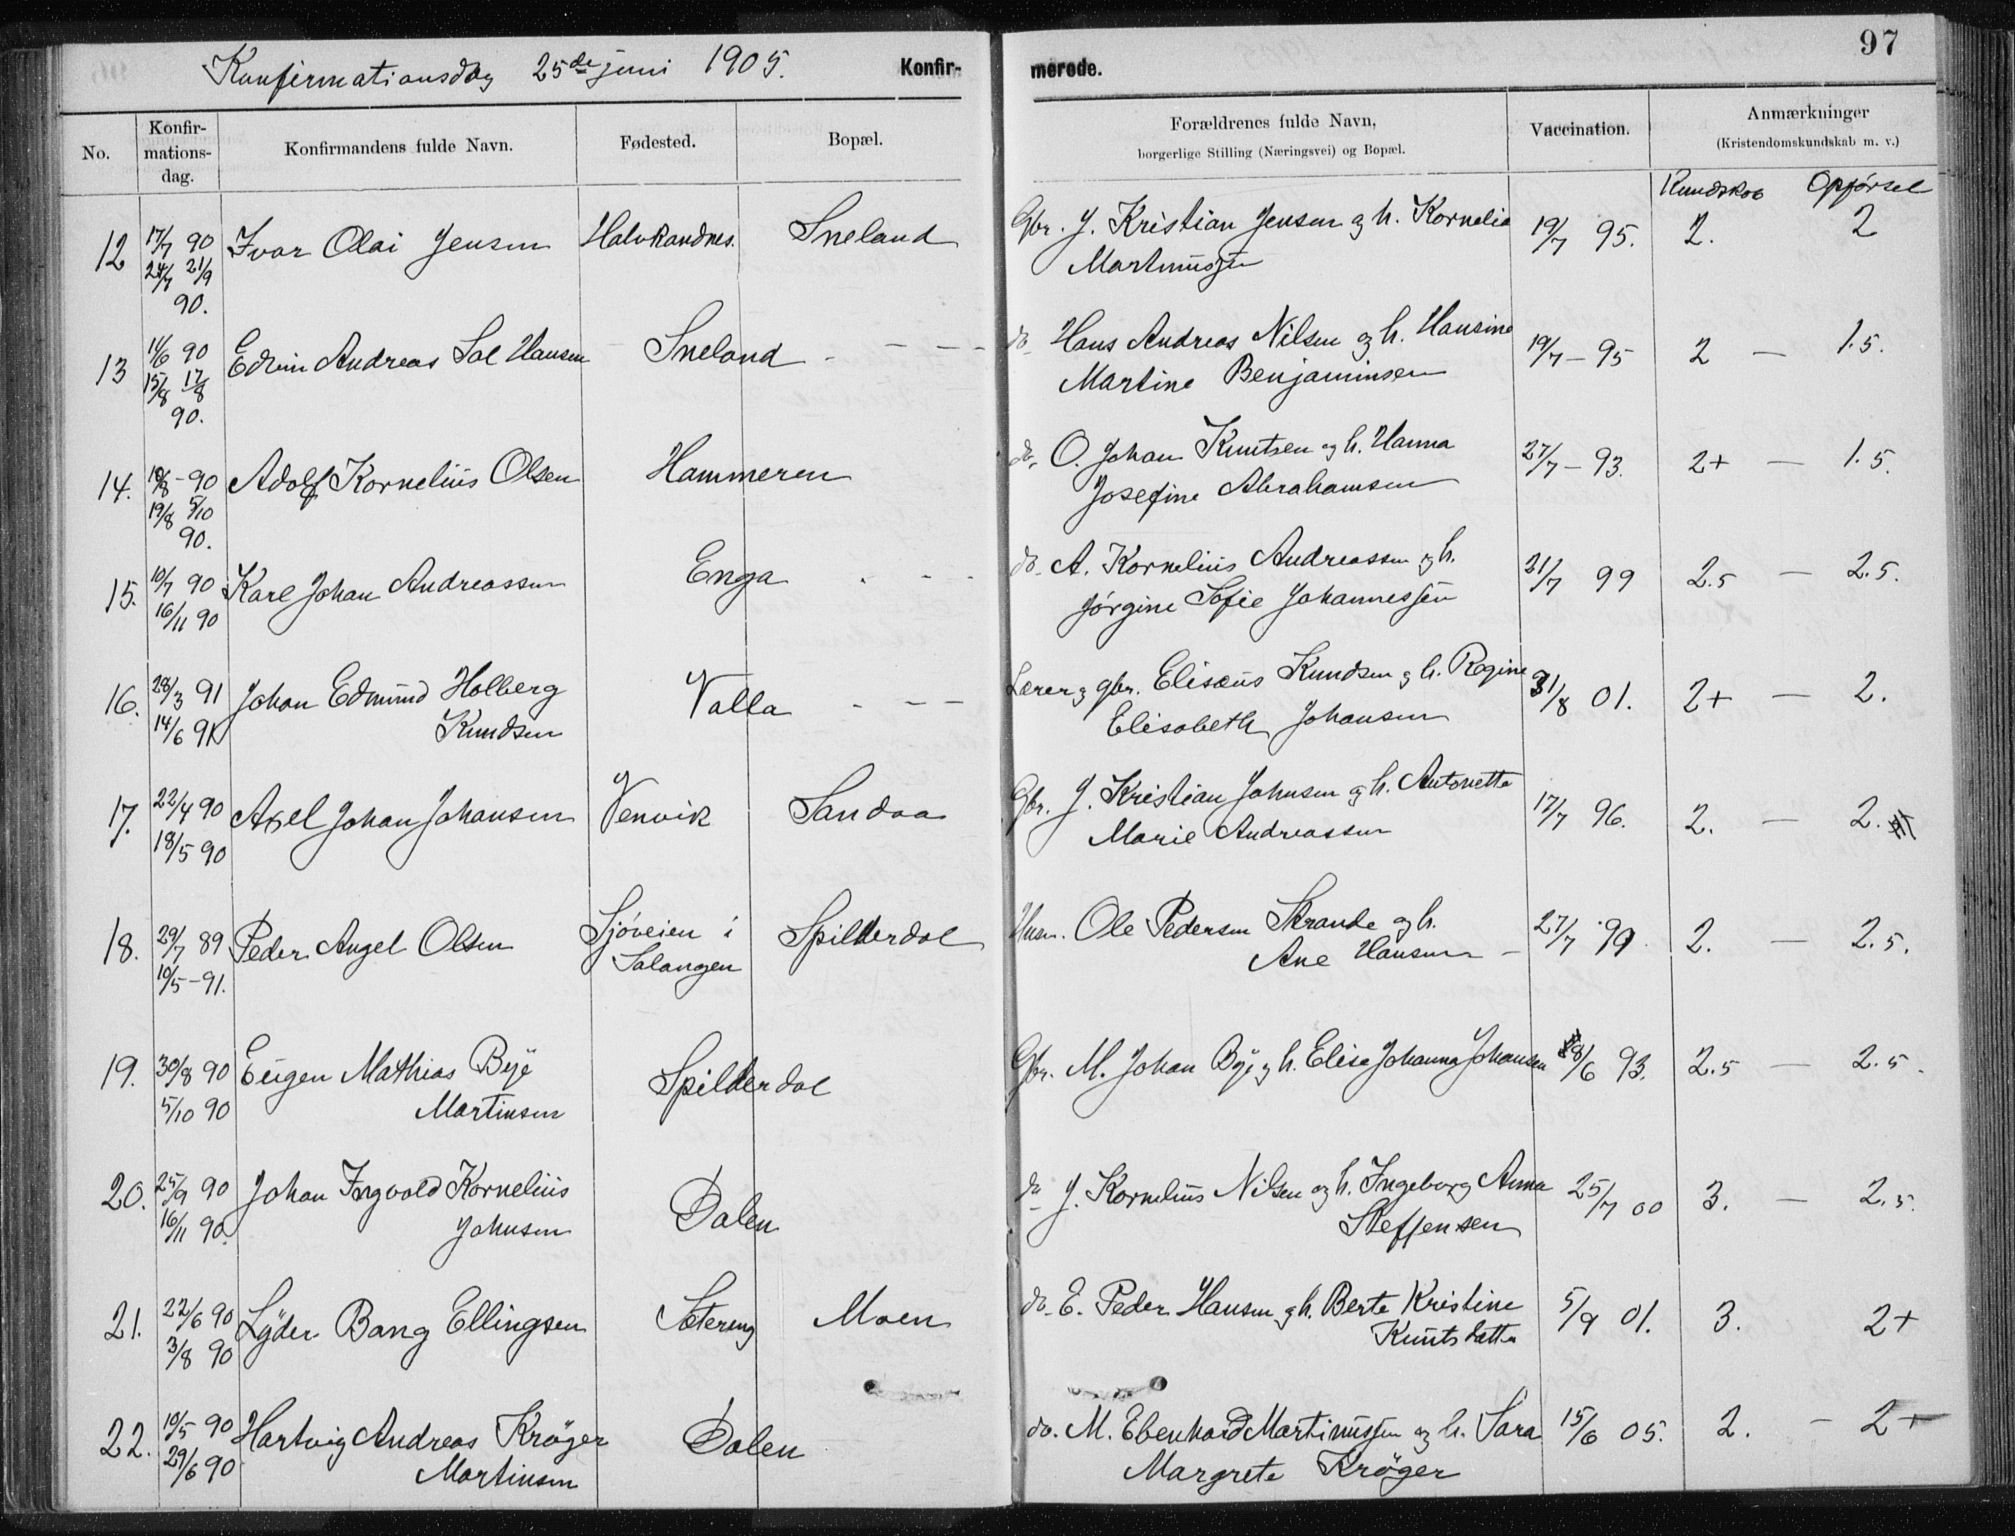 Konfirmationsdag 25de juni 1905. Konfir- merede. 97
No. Konfir-mations-dag. Konfirmandens fulde Navn. Fødested. Bopæl. Forældrenes fulde Navn, borgerlige Stilling (Næringsvei) og Bopæl. Vaccination. Anmærkninger (Kristendomskundskab m. v.)
Kundskab Opførsel
12 17/7 90 Ivar Olai Jensen Halvkandnes. Sneland Gbr. J. Kristian Jensen og h. Kornelia 19/7 95. 2. 2
24/7 21/9 Martinussen
90.
13 11/6 90 Edvin Andreas Sol Hansen Sneland - - - - do Hans Andreas Nilsen og h. Hansine 19/7 - 95 2 - 1.5.
15/8 17/8 Martine Benjaminsen
90.
14. 10/8 - 90 Adolf Kornelius Olsen Hammeren do. O. Johan Knutsen og h. Hanna 27/7 - 93. 2+ - 1.5.
19/8 5/10 Josefine Abrahamsen
90.
15. 10/7 90 Karl Johan Andreassen Enga - - - do. A. Kornelius Andreassen og h. 21/7 99 2.5 - 2.5.
16/11 90 Jørgine Sofie Johannessen
16. 28/3 91 Johan Edmund Holberg Valla - - - Lærer og gbr. Elisæus Knudsen og h. Regine 31/8 01. 2+ - 2.
14/6 91 Knudsen Elisabeth Johansen
17. 22/4 90 Axel Johan Johansen Venvik Sandaa Gbr. J. Kristian Johnsen og h. Antonette 17/7 96. 2. - 2.
18/5 90 Marie Andreassen
18. 29/7 89 Peder Angel Olsen Sjøveien i Spilderdal Husm. Ole Pedersen Strande og h. 27/7 99 2. - 2.5.
10/5 - 91. Salangen Ane Hansen -
19. 30/8 90 Eugen Mathias Bye Spilderdal Gbr. M. Johan Bye og h. Elise Johanna Johansen 28/6 93. 2.5 - 2.5.
5/10 90 Martinsen
20. 25/9 90 Johan Ingvald Kornelius Dalen do J. Kornelius Nilsen og h. Ingeborg Anna 25/7 00 3. - 2.5.
16/11 90. Johnsen Steffensen
21. 22/6 90 Lyder Bang Ellingsen Sætereng Moen do. E. Peder Hansen og h. Berte Kristine 5/9 01. 3. 2+
3/8 90 Knutsdatter
22. 10/5 90 Hartvig Andreas Krøger Dalen do. M. Ebenhard Martinussen og h. Sara 15/6 05. 2. - 2+
29/6 90 Martinsen Margrete Krøger